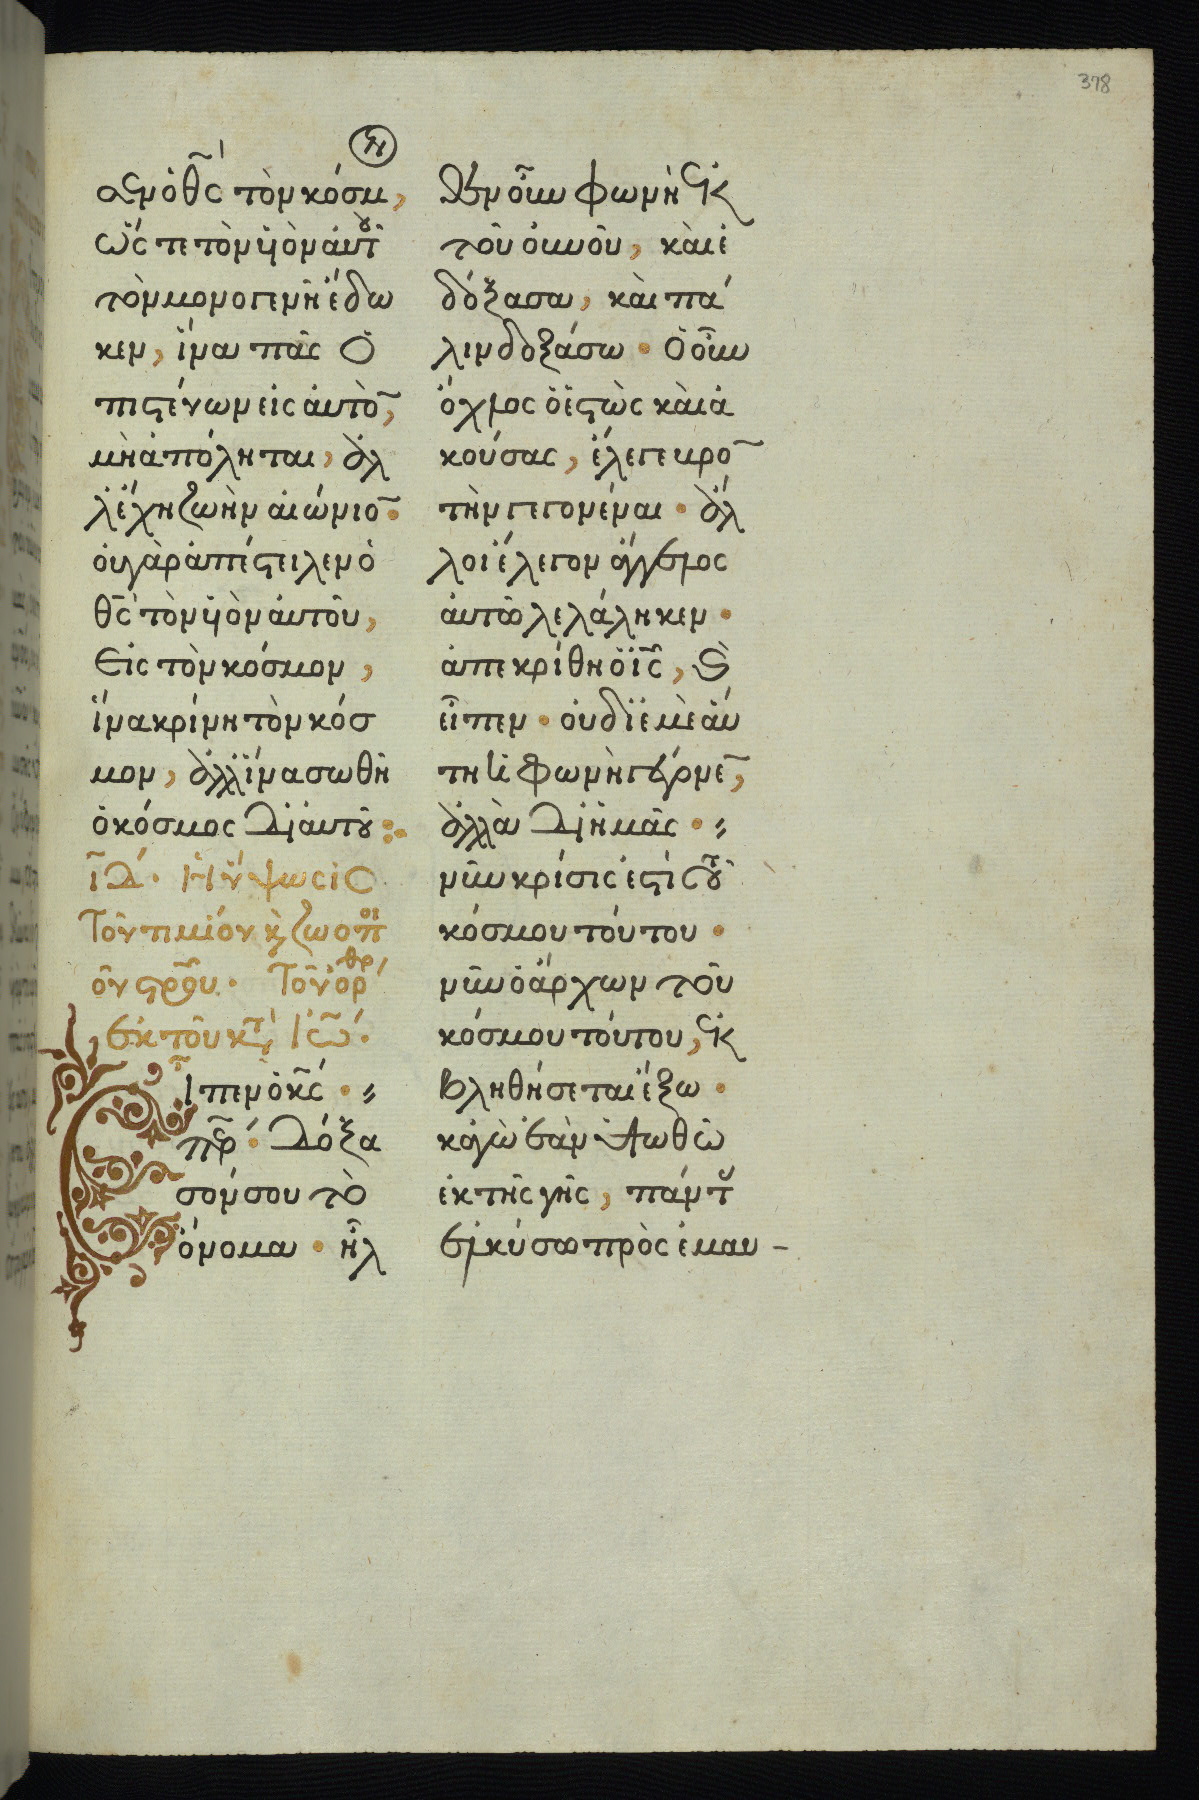 378
η
σεν ὁ θ̅ς τὸν κόσμ,
ὥστε τὸν ϋἱὸν αὐτοῦ
τὸν μονογενῆ ἔδω
κεν, ἵνα πᾶς ὁ
πιστεύων εἰς αὐτὸ,
μὴ ἀπόληται, ἀλ
λ' ἔχη ζωὴν αἰώνιο.
οὐ γὰρ ἀπέστειλεν ὁ
θ̅ς τὸν ϋἱὸν αὐτοῦ,
εἰς τὸν κόσμον,
ἵνα κρίνη τὸν κόσ
μον, ἀλλ' ἵνα σωθῆ
ὁ κόσμος δι' αὐτοῦ
ΙΔ. Ἡ ὕψωσις
τοῦ τιμίου κ ζωοπ
οῦ στρου. τοῦ ὄρθρ
ἐκ τοῦ κτ Ἰω.
Εἶπεν ὁ κ̅ς.
π̅ρ. δόξα
σόν σου τὸ
ὄνομα. ἦλ
θεν οὖν φωνὴ ἐκ
τοῦ οὐνοῦ, καὶ ἐ
δόξασα, καὶ πά
λιν δοξάσω. Ὁ οὖν
ὄχλος ὁ ἑστὼς καὶ ἀ
κούσας, ἔλεγε βρο
τὴν γεγονέναι. ἄλ
λοι ἔλεγον ἄγγελος
αὐτῶ λελάληκεν.
ἀπεκρίθη ὁ ι̅ς, κ
εἶπεν. οὐ δι' ἐμὲ αὕ
τη ἡ φωνὴ γέγονε,
ἀλλὰ δι' ἡμᾶς.
νῦν κρίσις ἐστὶ τοῦ
κόσμου τούτου.
νῦν ὁ ἄρχων τοῦ
κόσμου τούτου, ἐκ
βληθήσεται ἔξω.
κἀγὼ ἐὰν ὑψωθῶ
ἐκ τῆς γῆς, πάντ
ἑλκύσω πρὸς ἐμαυ-